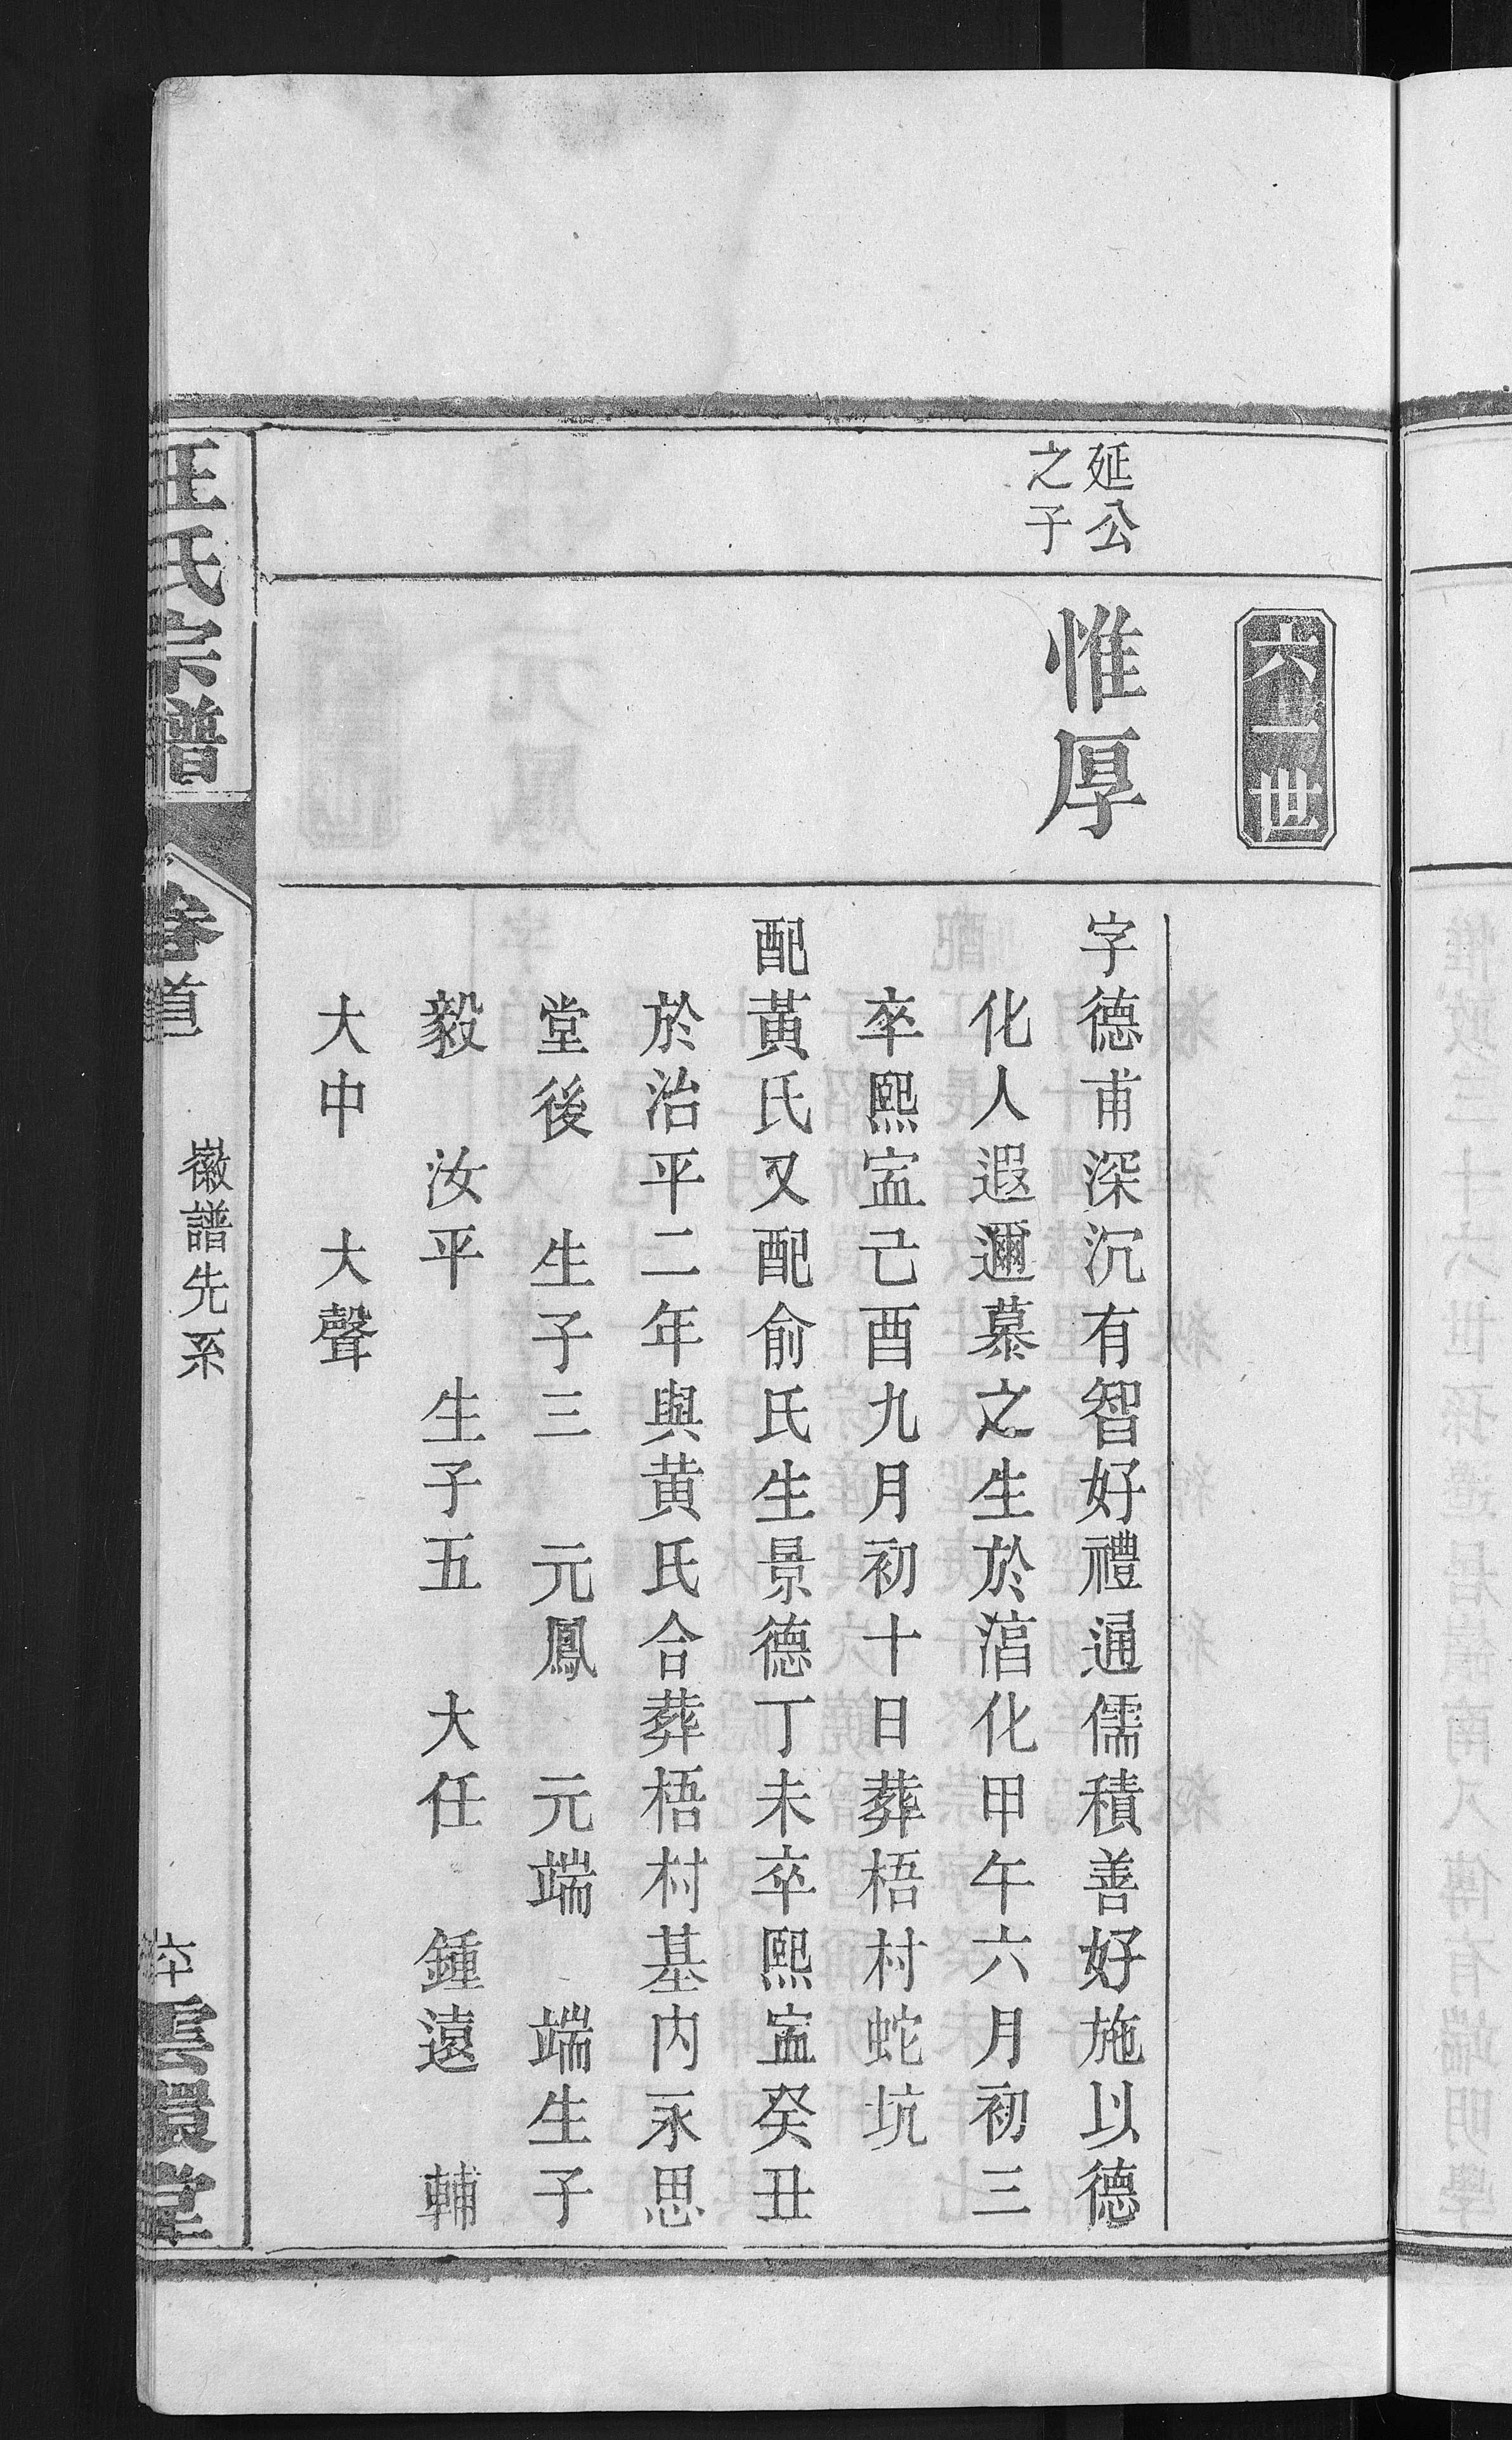 六一世
延公
之子
惟厚
字德甫深沉有智好禮通儒積善好施以德
化人遐邇慕之生於涫化甲午六月初三
卒熙寍己酉九月初十日葬梧村蛇坑
配黃氏又配俞氏生景德丁未卒熙寍癸丑
於治平二年與黄氏合葬梧村基内永思
堂後 生子三 元鳳 元端 端生子
毅 汝平 生子五 大任 鍾遠 輔
大中 大聲
王氏宗譜
卷首
徽譜先系
雲環堂